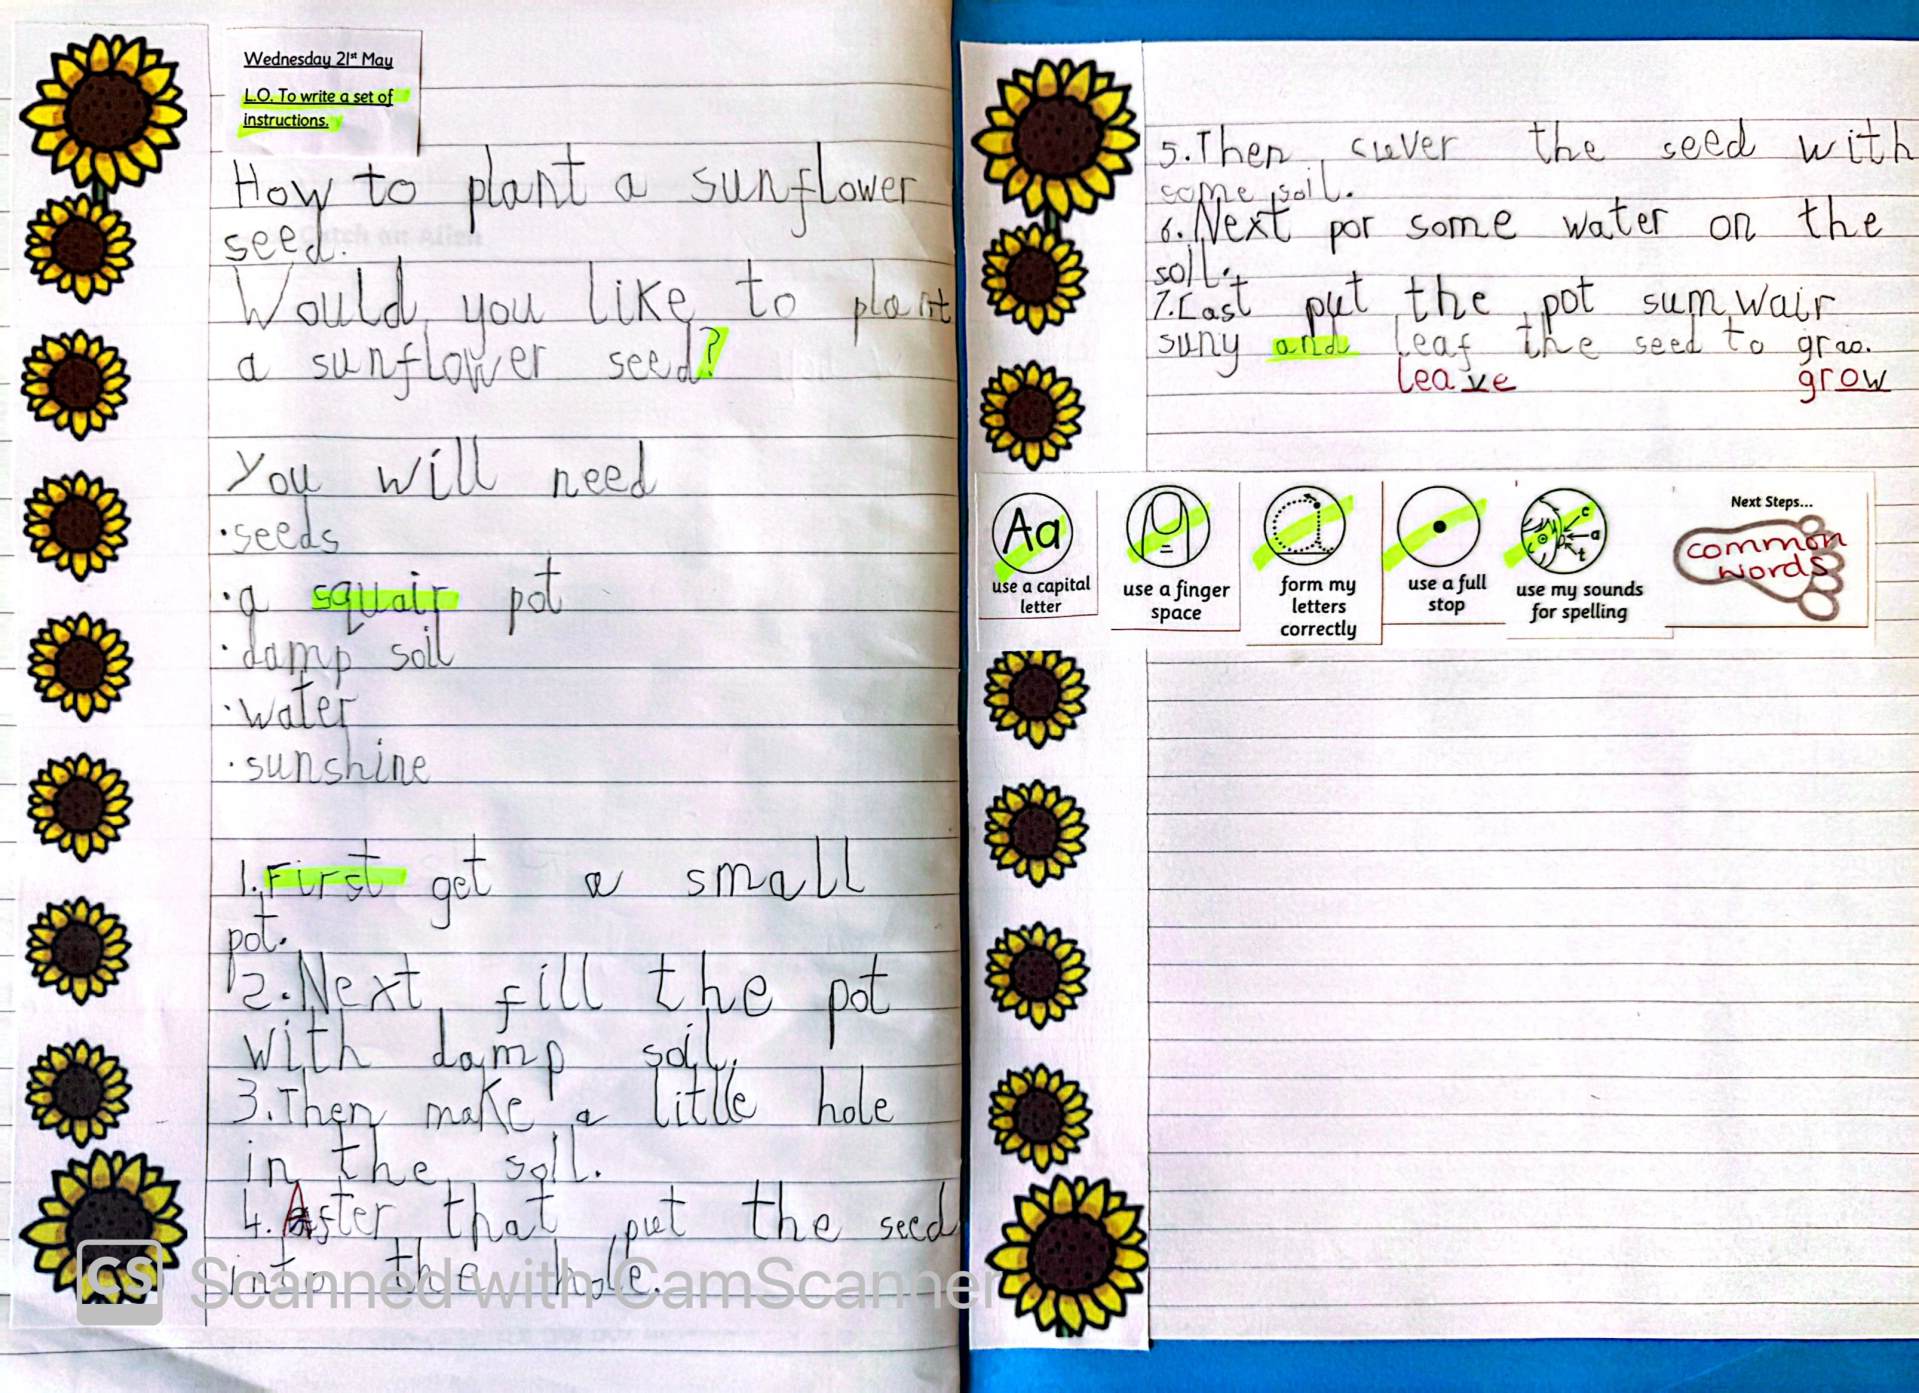 Wednesday 21st May
L.O. To write a set of
instructions.
How to plant a sunflower
seed.
Would you like to plant
a sunflower seed?
You will need
·seeds
·a squair pot
·damp soil
·water
·sunshine
1.First get a small
pot.
2.Next fill the pot
with damp soil.
3.Then make a little hole
in the soil.
4.After that put the seed
into the hole.
5.Then cuver the seed with
some soil.
6.Next por some water on the
soil.
7.Last put the pot sumwair
suny and leaf the seed to grao.
leave grow
Aa
use a capital
letter
use a finger
space
form my
letters
correctly
use a full
stop
c
a
t
use my sounds
for spelling
Next Steps...
common
words
CS Scanned with CamScanner